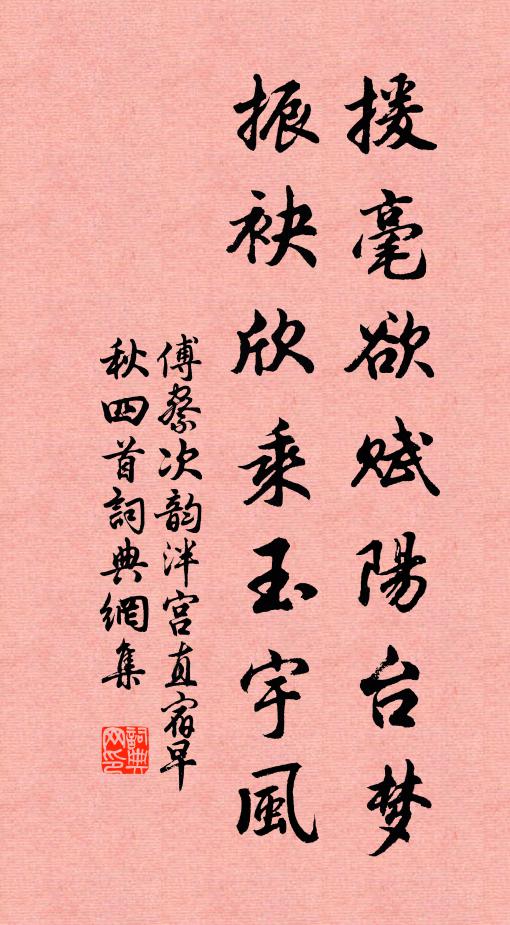 援毫欲赋陽台梦
振袂欣乘玉宇風
傅察次韵泮宫直宿早
秋四首詞典網集
詞典
网印